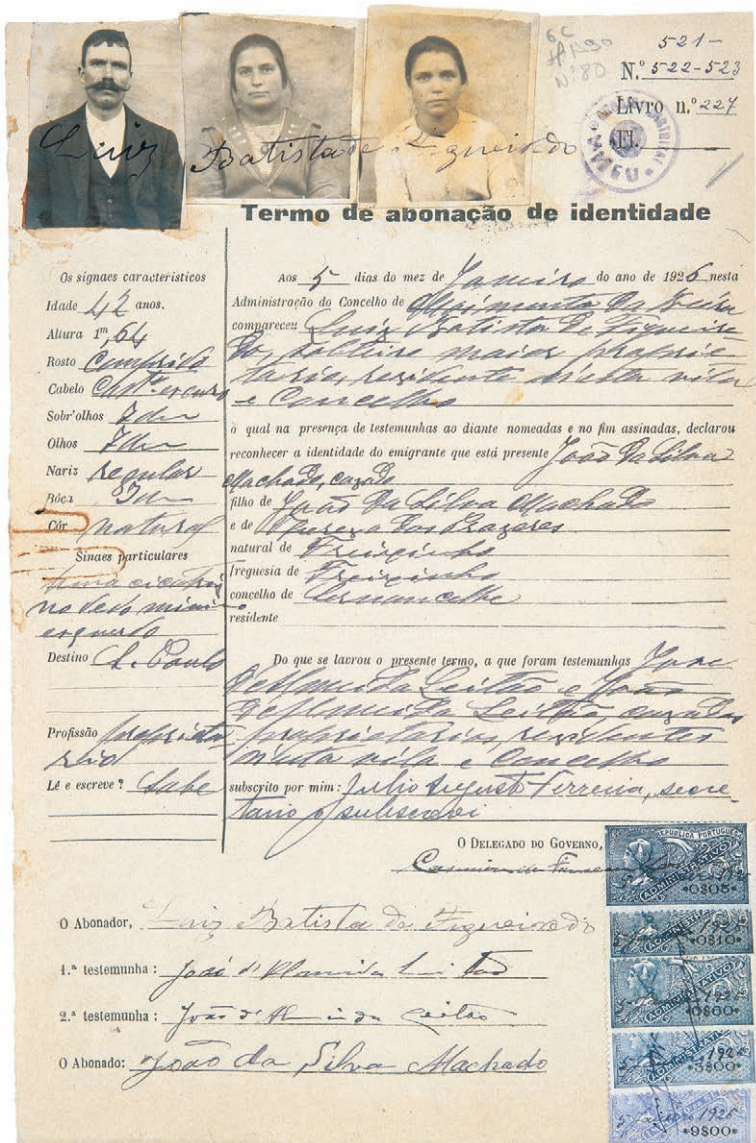 521-
N.º 522-523
Livro n.º 227
Fl.
6C
Nº 80
Luiz Batista de Figueiredo
Termo de abonação de identidade
Os signaes caracteristicos
Idade 42 anos.
Altura 1m,64
Rosto Comprido
Cabelo Castº. escuro
Sobr'olhos Idem
Olhos Idem
Nariz regular
Bôca Idem
Côr natural
Sinaes particulares
Uma cicatriz
no dedo minimo
esquerdo
Destino S. Paulo
Profissão proprieta
rio
Lê e escreve? Sabe
Aos 5 dias do mez de Janeiro do ano de 1926 nesta
Administração do Concelho de Moimenta da Beira
compareceu Luiz Batista de Figueire-
do, solteiro maior proprie-
tario, residente nesta vila
e Concelho
o qual na presença de testemunhas ao diante nomeadas e no fim assinadas, declarou
reconhecer a identidade do emigrante que está presente João da Silva
Machado, cazado
filho de João da Silva Machado
e de Tereza dos Prazeres
natural de Freixinho
freguesia de Freixinho
concelho de Sernancelhe
residente
Do que se lavrou o presente termo, a que foram testemunhas José
d'Almeida Leitão e João
d'Almeida Leitão, cazados
proprietarios, residentes
nesta vila e Concelho
subscrito por mim: Julio Augusto Ferreira, secre-
tario o subscrevi
O Delegado do Governo,
O Abonador, Luiz Batista de Figueiredo
1.ª testemunha: José d'Almeida Leitão
2.ª testemunha: João d'Almeida Leitão
O Abonado: João da Silva Machado
REPUBLICA PORTUGUESA
ADMINISTRATIVO
0$05
ADMINISTRATIVO
0$10
ADMINISTRATIVO
0$00
ADMINISTRATIVO
3$00
9$00